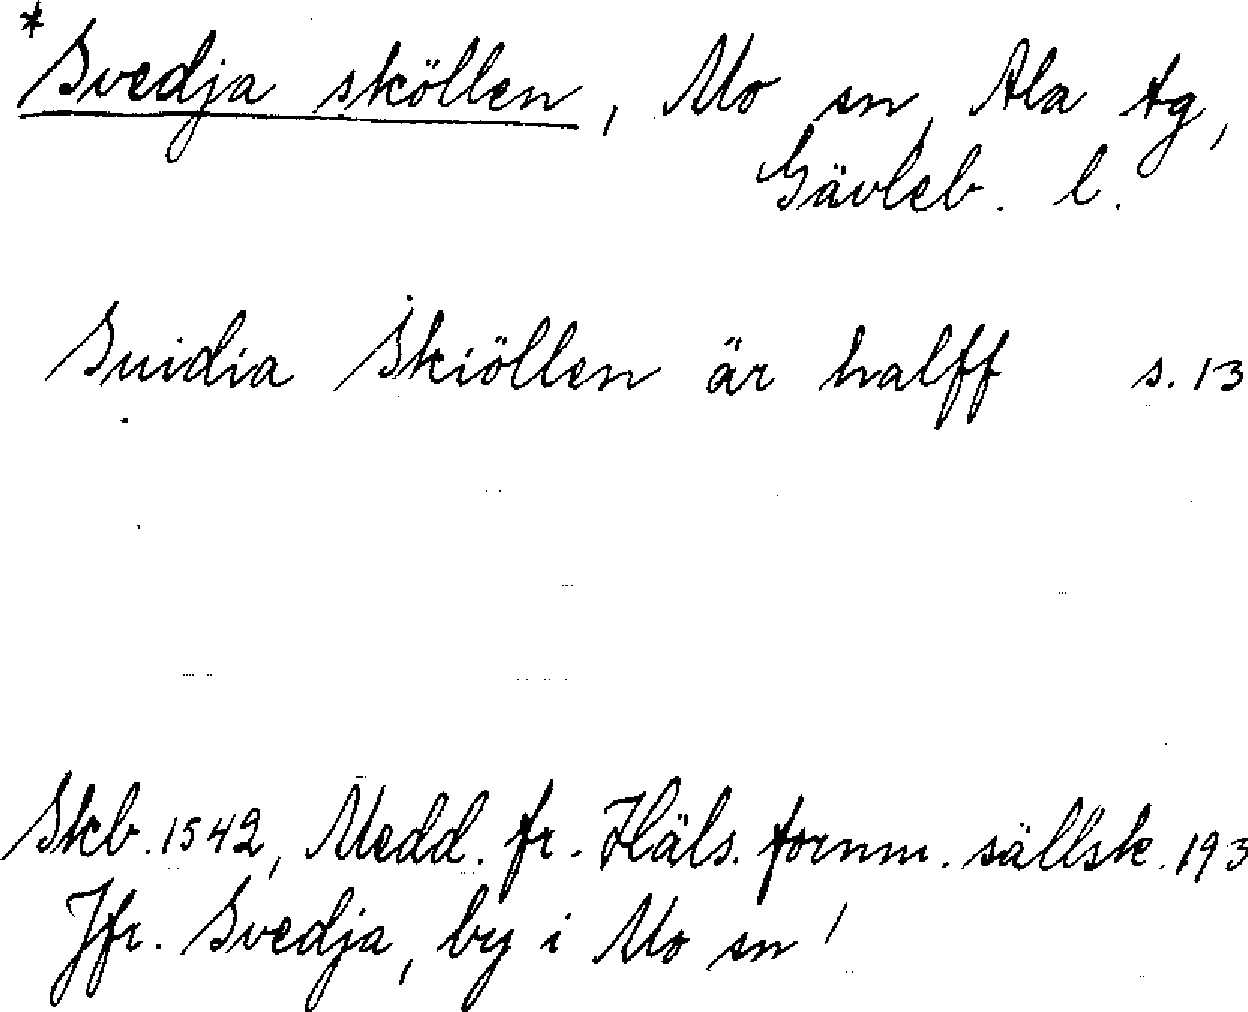 *Svedja sköllen, Mo sn, Ala tg,
Gävleb. l.
Suidia Skiöllen är halff s. 13
Skb. 1542, Medd. fr. Häls. fornm. sällsk. 193
Jfr. Svedja, by i Mo sn!